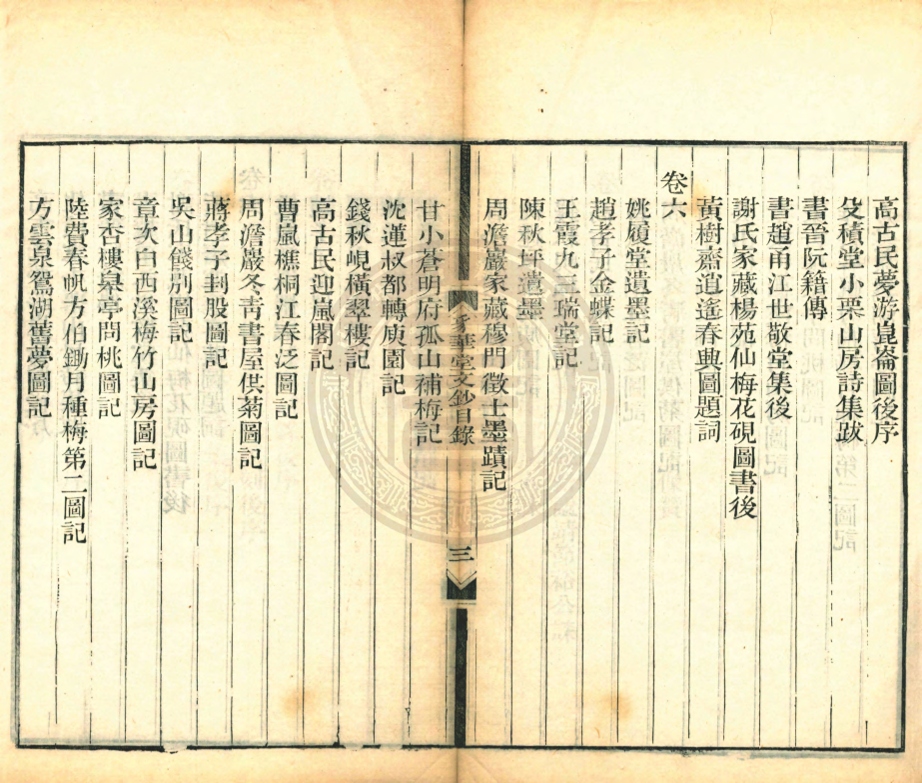 高古民夢游崑崙圖後序
殳積堂小栗山房詩集跋
書晉阮籍傳
書趙甬江世敬堂集後
謝氏家藏楊苑仙梅花硯圖書後
黃樹齋逍遙春典圖題詞
卷六
姚履堂遺墨記
趙孝子金蝶記
王霞九三瑞堂記
陳秋坪遺墨記
周澹巖家藏穆門徵士墨蹟記
華堂文鈔目錄
三
甘小蒼明府孤山補梅記
沈蓮叔都轉庾園記
錢秋峴橫翠樓記
高古民迎嵐閣記
曹嵐樵桐江春泛圖
周澹巖冬靑書屋供菊圖記
蔣孝子刲股圖記
吳山餞別圖記
章次白西溪梅竹山房圖記
家杏樓皋亭問桃圖記
陸費春帆方伯鋤月種梅第二圖記
方雲泉鴛湖舊夢圖記